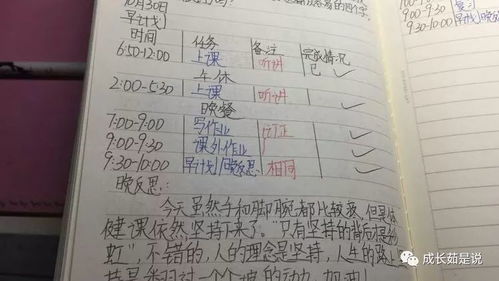 10月30日
早计划:
时间 任务 备注 完成情况
6:50-12:00 上课 听讲 已 ✓
午休
2:00-5:30 上课 听讲 ✓
晚餐
7:00-9:00 写作业 订正 ✓
9:00-9:30 课外作业 ✓
9:30-10:00 早计划/晚反思 相同 ✓
晚反思:
今天虽然手和脚腕都比较疼,但是体
健课依然坚持下来了。"只有坚持的背后得的
虹",不错的,人的理念是坚持,人生的路上
9:00-9:30 复习
9:30-10:00 早计划/晚
成长茹是说